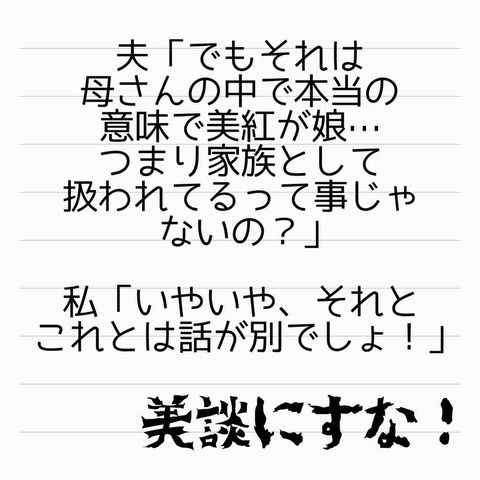 夫「でもそれは
母さんの中で本当の
意味で美紅が娘…
つまり家族として
扱われてるって事じゃ
ないの？」
私「いやいや、それと
これとは話が別でしょ！」
美談にすな！